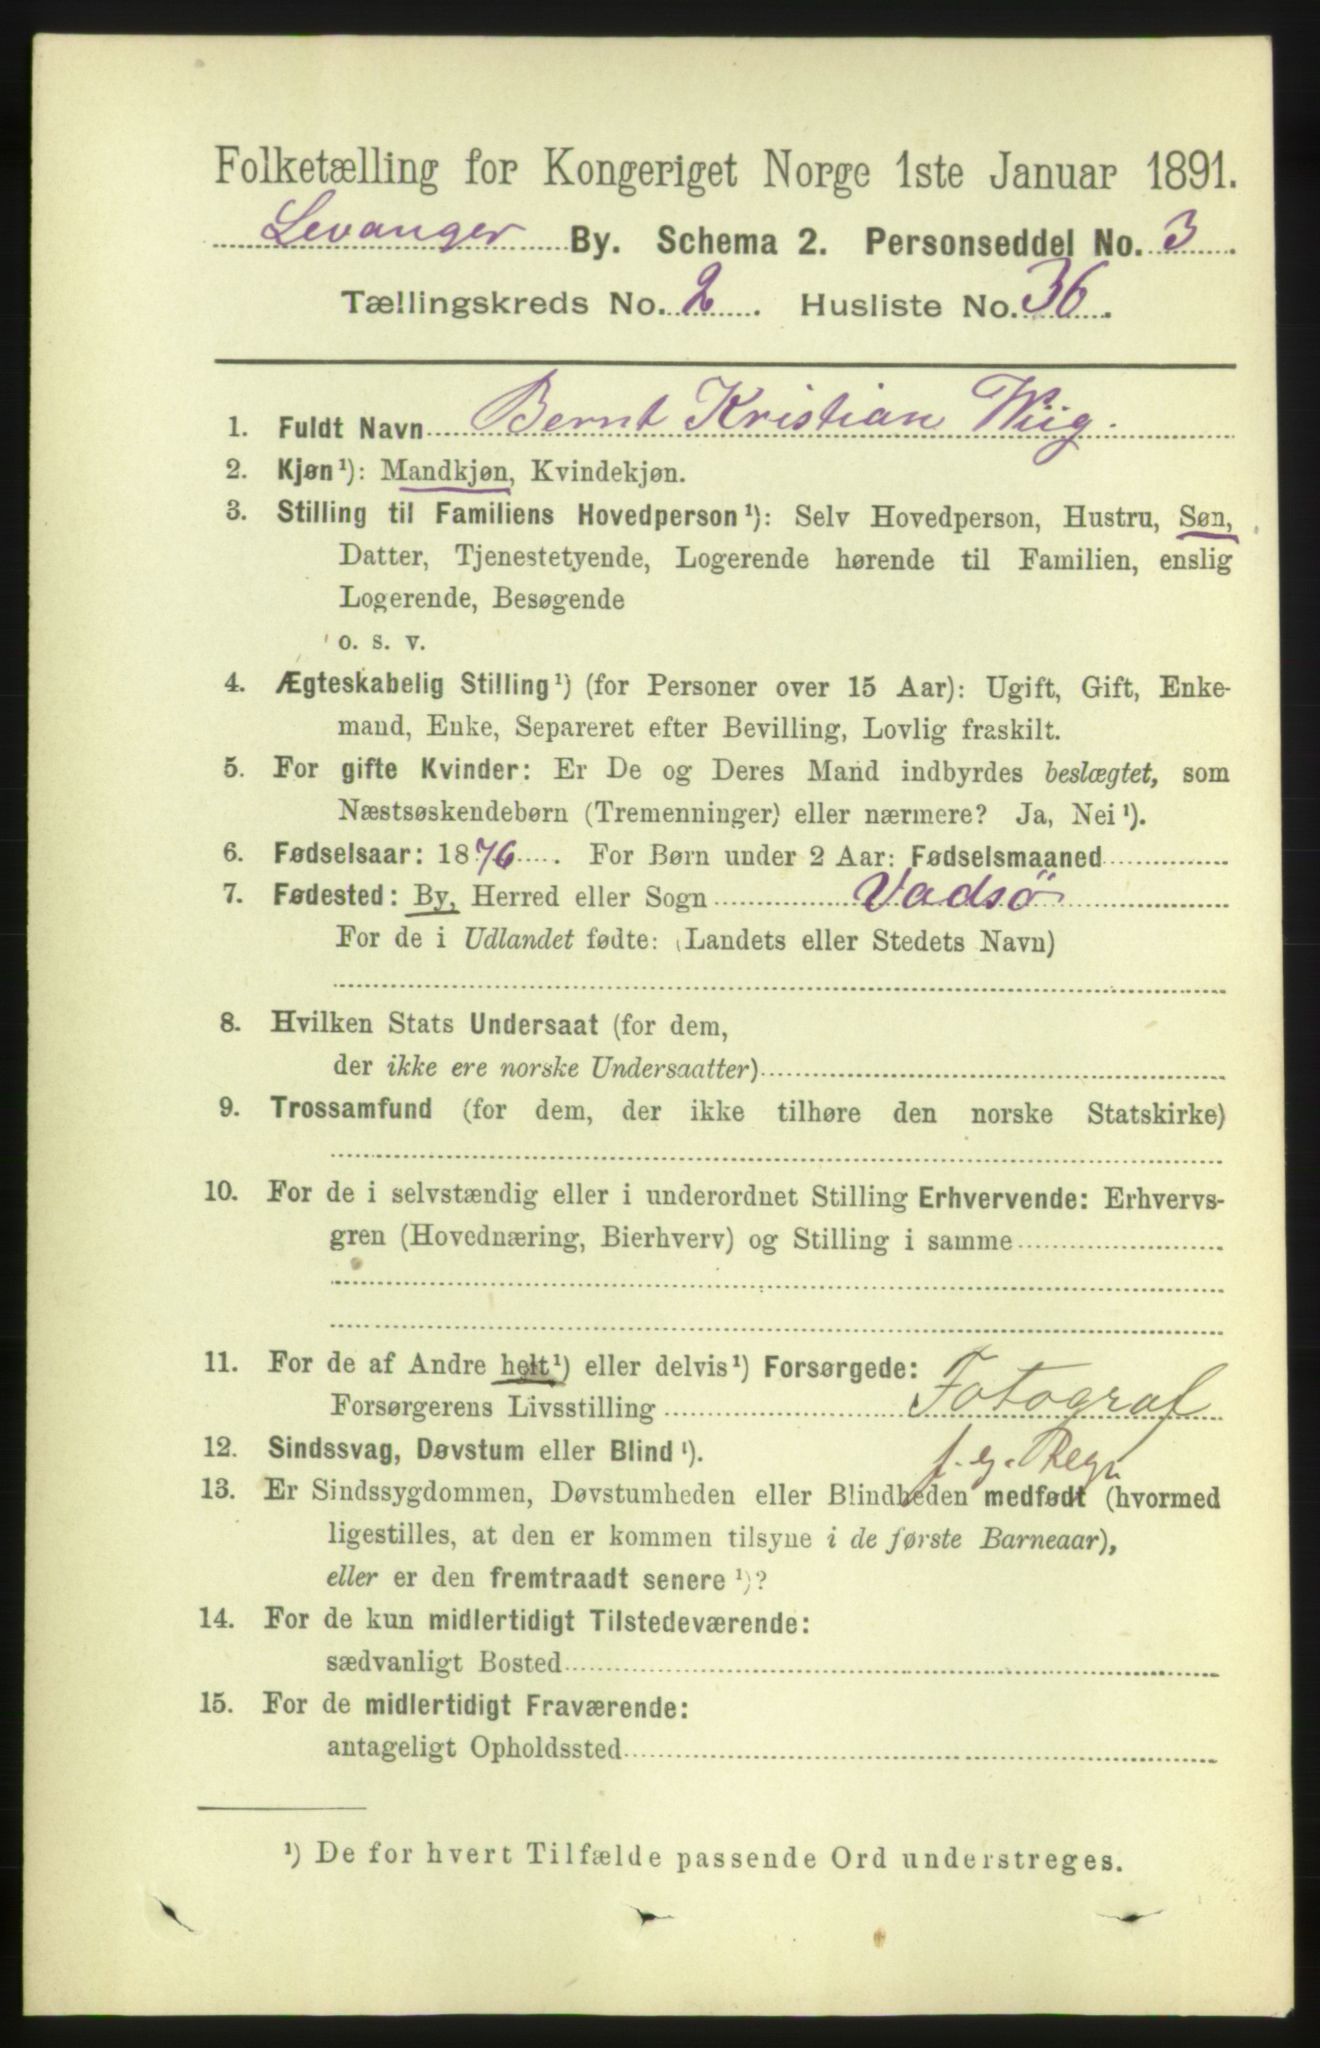 Folketælling for Kongeriget Norge 1ste Januar 1891.
Levanger By. Schema 2. Personseddel No. 3.
Tællingskreds No. 2. Husliste No. 36.
1. Fuldt Navn Bernt Kristian Wiig.
2. Kjøn¹): Mandkjøn, Kvindekjøn.
3. Stilling til Familiens Hovedperson¹): Selv Hovedperson, Hustru, Søn,
Datter, Tjenestetyende, Logerende hørende til Familien, enslig
Logerende, Besøgende
o. s. v.
4. Ægteskabelig Stilling¹) (for Personer over 15 Aar): Ugift, Gift, Enke-
mand, Enke, Separeret efter Bevilling, Lovlig fraskilt.
5. For gifte Kvinder: Er De og Deres Mand indbyrdes beslægtet, som
Næstsøskendebørn (Tremenninger) eller nærmere? Ja, Nei¹).
6. Fødselsaar: 1876. For Børn under 2 Aar: Fødselsmaaned
7. Fødested: By, Herred eller Sogn Vadsö
For de i Udlandet fødte: (Landets eller Stedets Navn)
8. Hvilken Stats Undersaat (for dem,
der ikke ere norske Undersaatter)
9. Trossamfund (for dem, der ikke tilhøre den norske Statskirke)
10. For de i selvstændig eller i underordnet Stilling Erhvervende: Erhvervs-
gren (Hovednæring, Bierhverv) og Stilling i samme
11. For de af Andre helt¹) eller delvis¹) Forsørgede:
Forsørgerens Livsstilling Fotograf
f. eg. Regn
12. Sindssvag, Døvstum eller Blind¹).
13. Er Sindssygdommen, Døvstumheden eller Blindheden medfødt (hvormed
ligestilles, at den er kommen tilsyne i de første Barneaar),
eller er den fremtraadt senere¹)?
14. For de kun midlertidigt Tilstedeværende:
sædvanligt Bosted
15. For de midlertidigt Fraværende:
antageligt Opholdssted
¹) De for hvert Tilfælde passende Ord understreges.